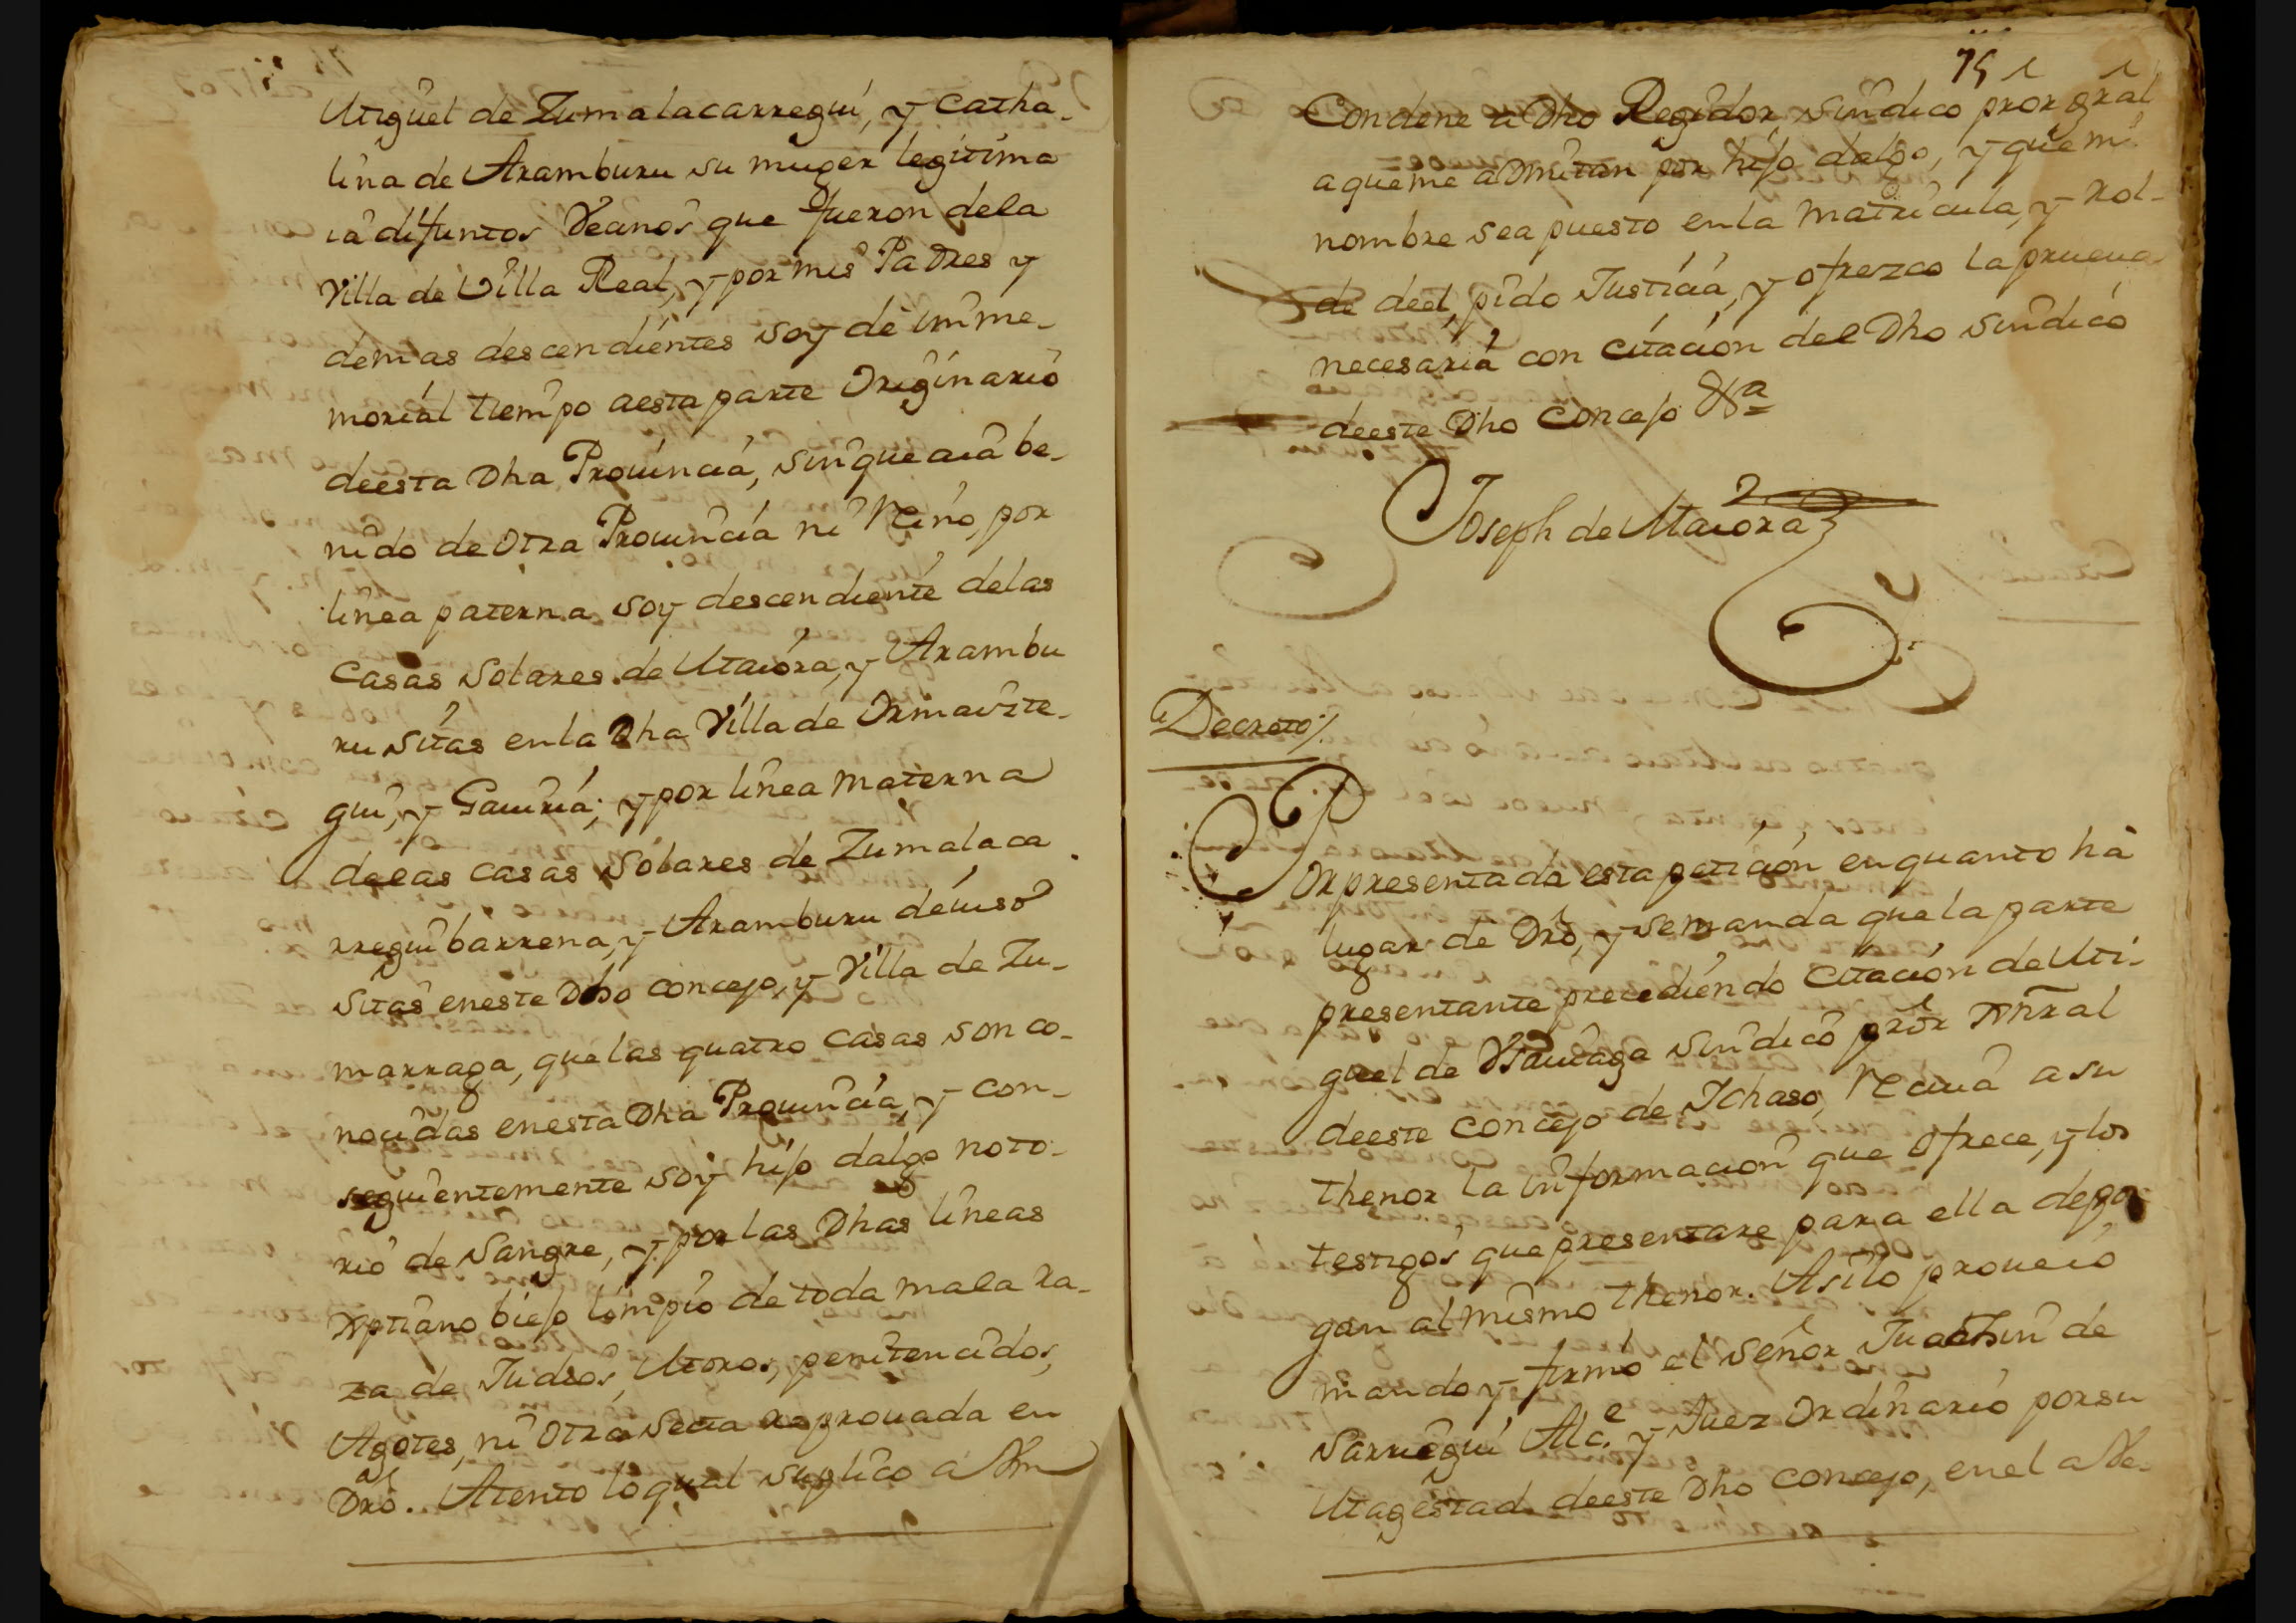 Miguel de Zumalacarregui, y Catha-
lina de Aramburu su muger legitima
ia difuntos Veanos que fueron dela
Villa de Villa Real, y por mis Padres y
demas descendientes soy de imme-
morial tiempo aesta parte Originario
deesta Dha Prouincia, sin que aia be-
nido de Otra Prouincia ni Reino, por
linea paterna soy descendiente delas
Casas Solares de Maiora, y Arambu
ru sitas enla Dha Villa de Ormaizte-
gui, y Gauiria; y por linea Materna
delas casas Solares de Zumalaca
rreguibarrena, y Aramburu deiuso
sitas eneste Dho concejo, y Villa de Zu-
marraga, quelas quatro casas son co-
nocidas enesta Dha Prouincia, y con-
seguientemente soy hijo dalgo noto-
rio de Sangre, y por las Dhas lineas
Xptiano biejo limpio de toda mala ra-
za de Judios, Moros, penitenciados,
Agotes, ni Otra Secta reprouada en
Dro. Atento lo qual suplico a Vm
75
Condene a Dho Regidor sindico pror gral
aqueme admitan por hijo dalgo, y que mi
nombre sea puesto enla Matricula, y Rol-
de deel, pido Justicia, y ofrezco la prueua
necesaria con citacion del Dho sindico
deeste Dho Concejo &a
Joseph de Maiora
Decreto/.
Por presentada esta peticion en quanto há
lugar de Dro, y semanda que la parte
presentante precediendo Citacion de Mi-
guel de sindico pror gnral
deeste concejo de Ichaso, Reciua a su
thenor la informacion que Ofrece, y los
testigos que presentare para ella depo
gan al mismo thenor. Asilo proueió
mando y firmó el Señor Juachin de
Sarriegui Alce. y Juez Ordinario por su
Magestad deeste Dho concejo, en el a Ve-